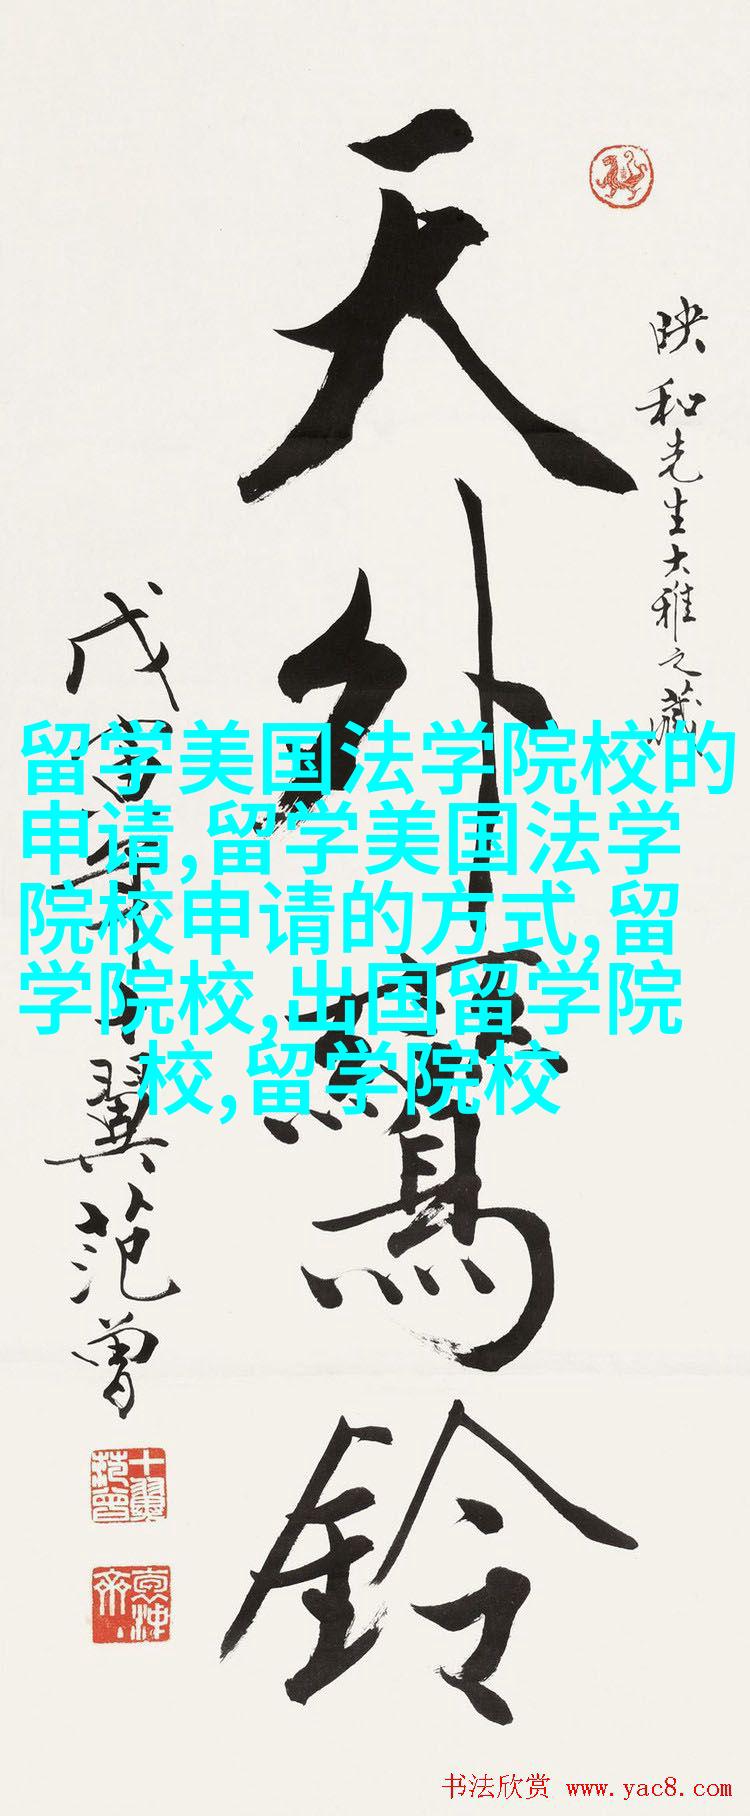 映和先生大雅之藏
天外鸞鈴
戊寅年十翼范曾
留学美国法学院校的
申请,留学美国法学
院校申请的方式,留
学院校,出国留学院
校,留学院校
十翼范曾
书法欣赏 www.yac8.com